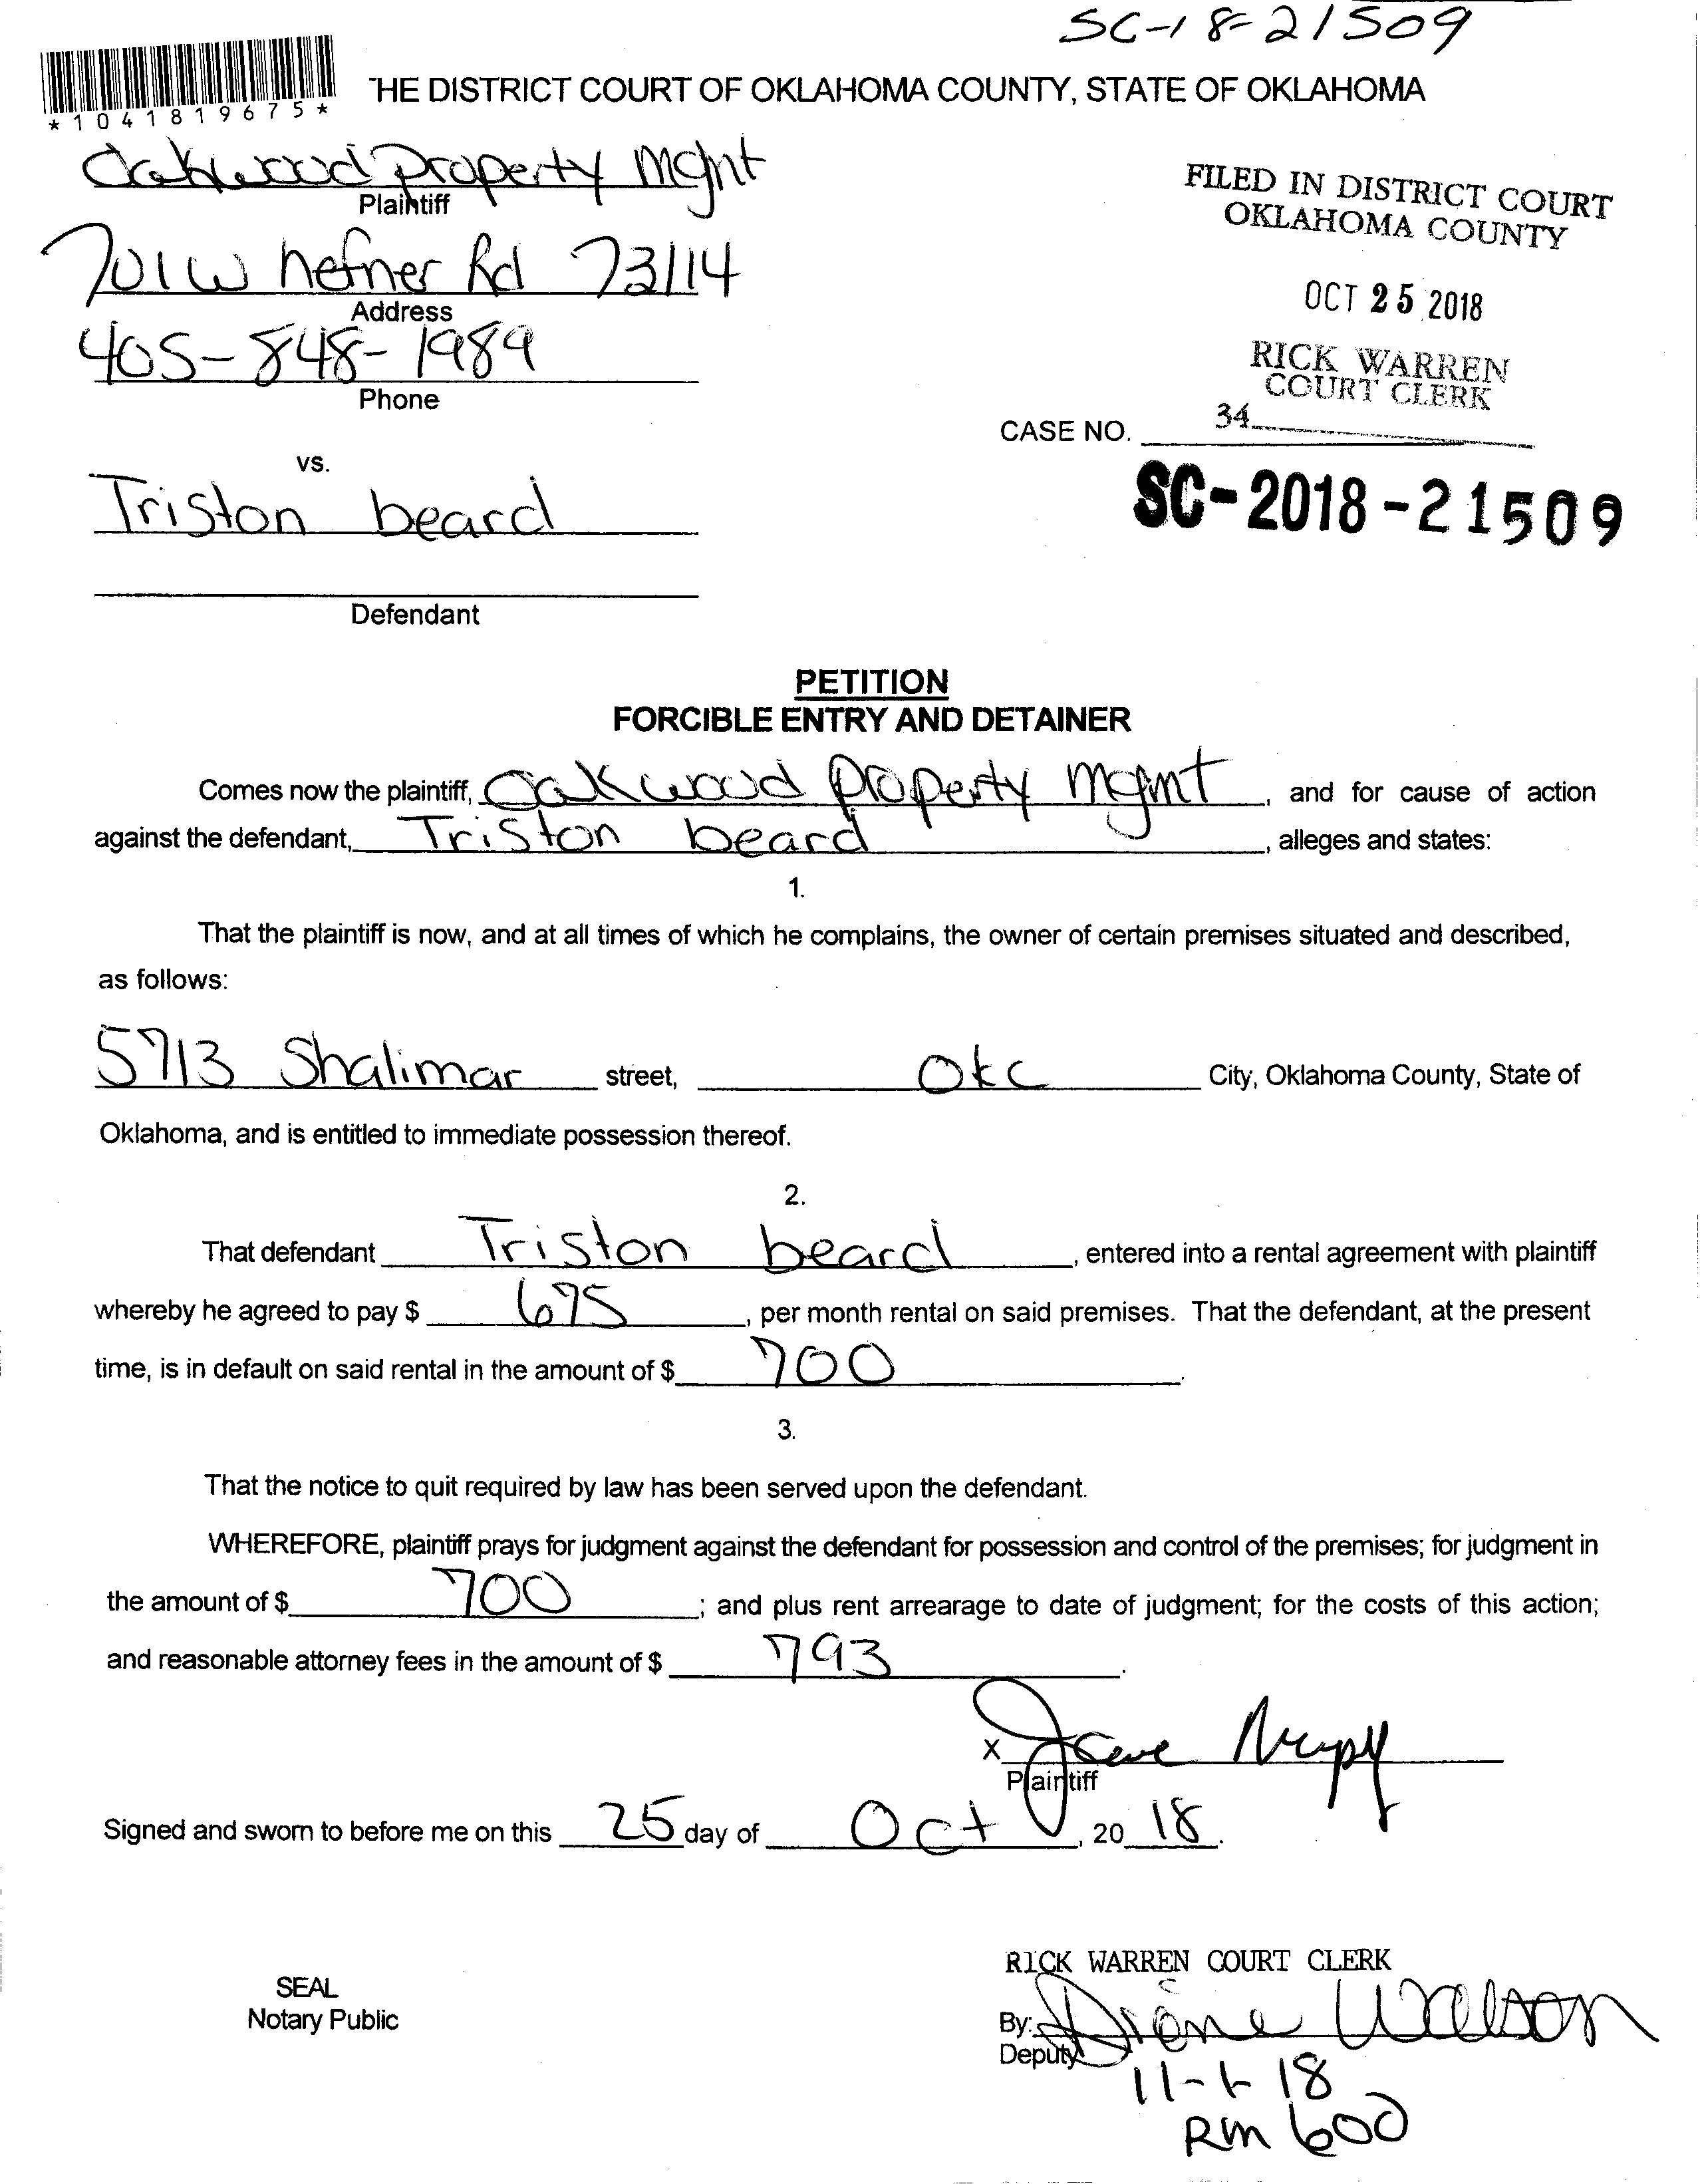 SC-18-21509
*1041819675*
THE DISTRICT COURT OF OKLAHOMA COUNTY, STATE OF OKLAHOMA
Oakwood Property Mgnt
Plaintiff
701 W hefner Rd 73114
Address
405-848-1989
Phone
FILED IN DISTRICT COURT
OKLAHOMA COUNTY
OCT 25 2018
RICK WARREN
COURT CLERK
34
CASE NO.
SC-2018-21509
vs.
Triston beard
Defendant
PETITION
FORCIBLE ENTRY AND DETAINER
Comes now the plaintiff, Oakwood Property Mgmt, and for cause of action
against the defendant, Triston beard, alleges and states:
1.
That the plaintiff is now, and at all times of which he complains, the owner of certain premises situated and described,
as follows:
5713 Shalimar street, OKC City, Oklahoma County, State of
Oklahoma, and is entitled to immediate possession thereof.
2.
That defendant Triston beard, entered into a rental agreement with plaintiff
whereby he agreed to pay $ 695, per month rental on said premises. That the defendant, at the present
time, is in default on said rental in the amount of $ 700.
3.
That the notice to quit required by law has been served upon the defendant.
WHEREFORE, plaintiff prays for judgment against the defendant for possession and control of the premises; for judgment in
the amount of $ 700; and plus rent arrearage to date of judgment; for the costs of this action;
and reasonable attorney fees in the amount of $ 793.
X
Plaintiff
Signed and sworn to before me on this 25 day of Oct, 20 18.
RICK WARREN COURT CLERK
SEAL
Notary Public
By: Diane Watson
Deputy
11-1-18
Rm 600